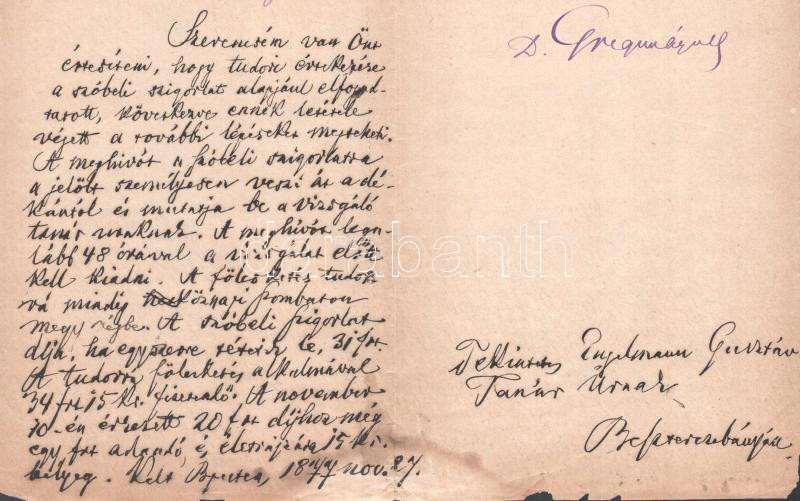 Szerencsém van Önt
értesíteni, hogy tudori értekezése
a szóbeli szigorlat alapjául elfogad-
tatott, következve ennek letétele
végett a további lépéseket megteheti.
A meghivót a szóbeli szigorlatra
a jelölt személyesen veszi át a dé-
kántól és mutatja be a vizsgáló
tanár uraknak. A meghivót lega-
lább 48 órával a vizsgálat előtt
kell kiadni. A fölesketés tudor-
rá mindig köznapi szombaton
megy végbe. A szóbeli szigorlat
díja, ha egyszerre tétetik le, 31 frt.
A tudorrá fölesketés alkalmával
34 frt 15 kr. fizetendő. A november
10-én érkezett 20 frt díjhoz még
egy frt adandó, és életrajzára 15 kr.
bélyeg. Kelt 1877 nov. 27.
D.
Tekintetes Engelmann Gusztáv
Tanár Úrnak
Beszterczebányán
darabanth